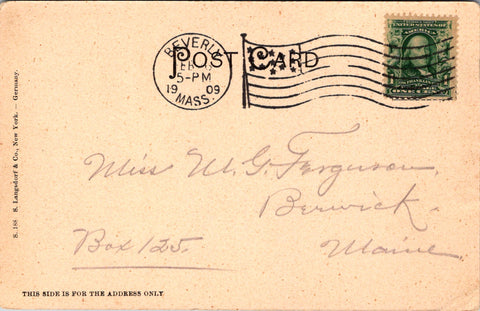 POST CARD
BEVERLY
5-PM
19 09
MASS.
UNITED STATES OF AMERICA
FRANKLIN
ONE CENT
Miss M. G. Ferguson,
Berwick.
Box 125.
Maine
S. 188 S. Langsdorf & Co., New York. — Germany.
THIS SIDE IS FOR THE ADDRESS ONLY